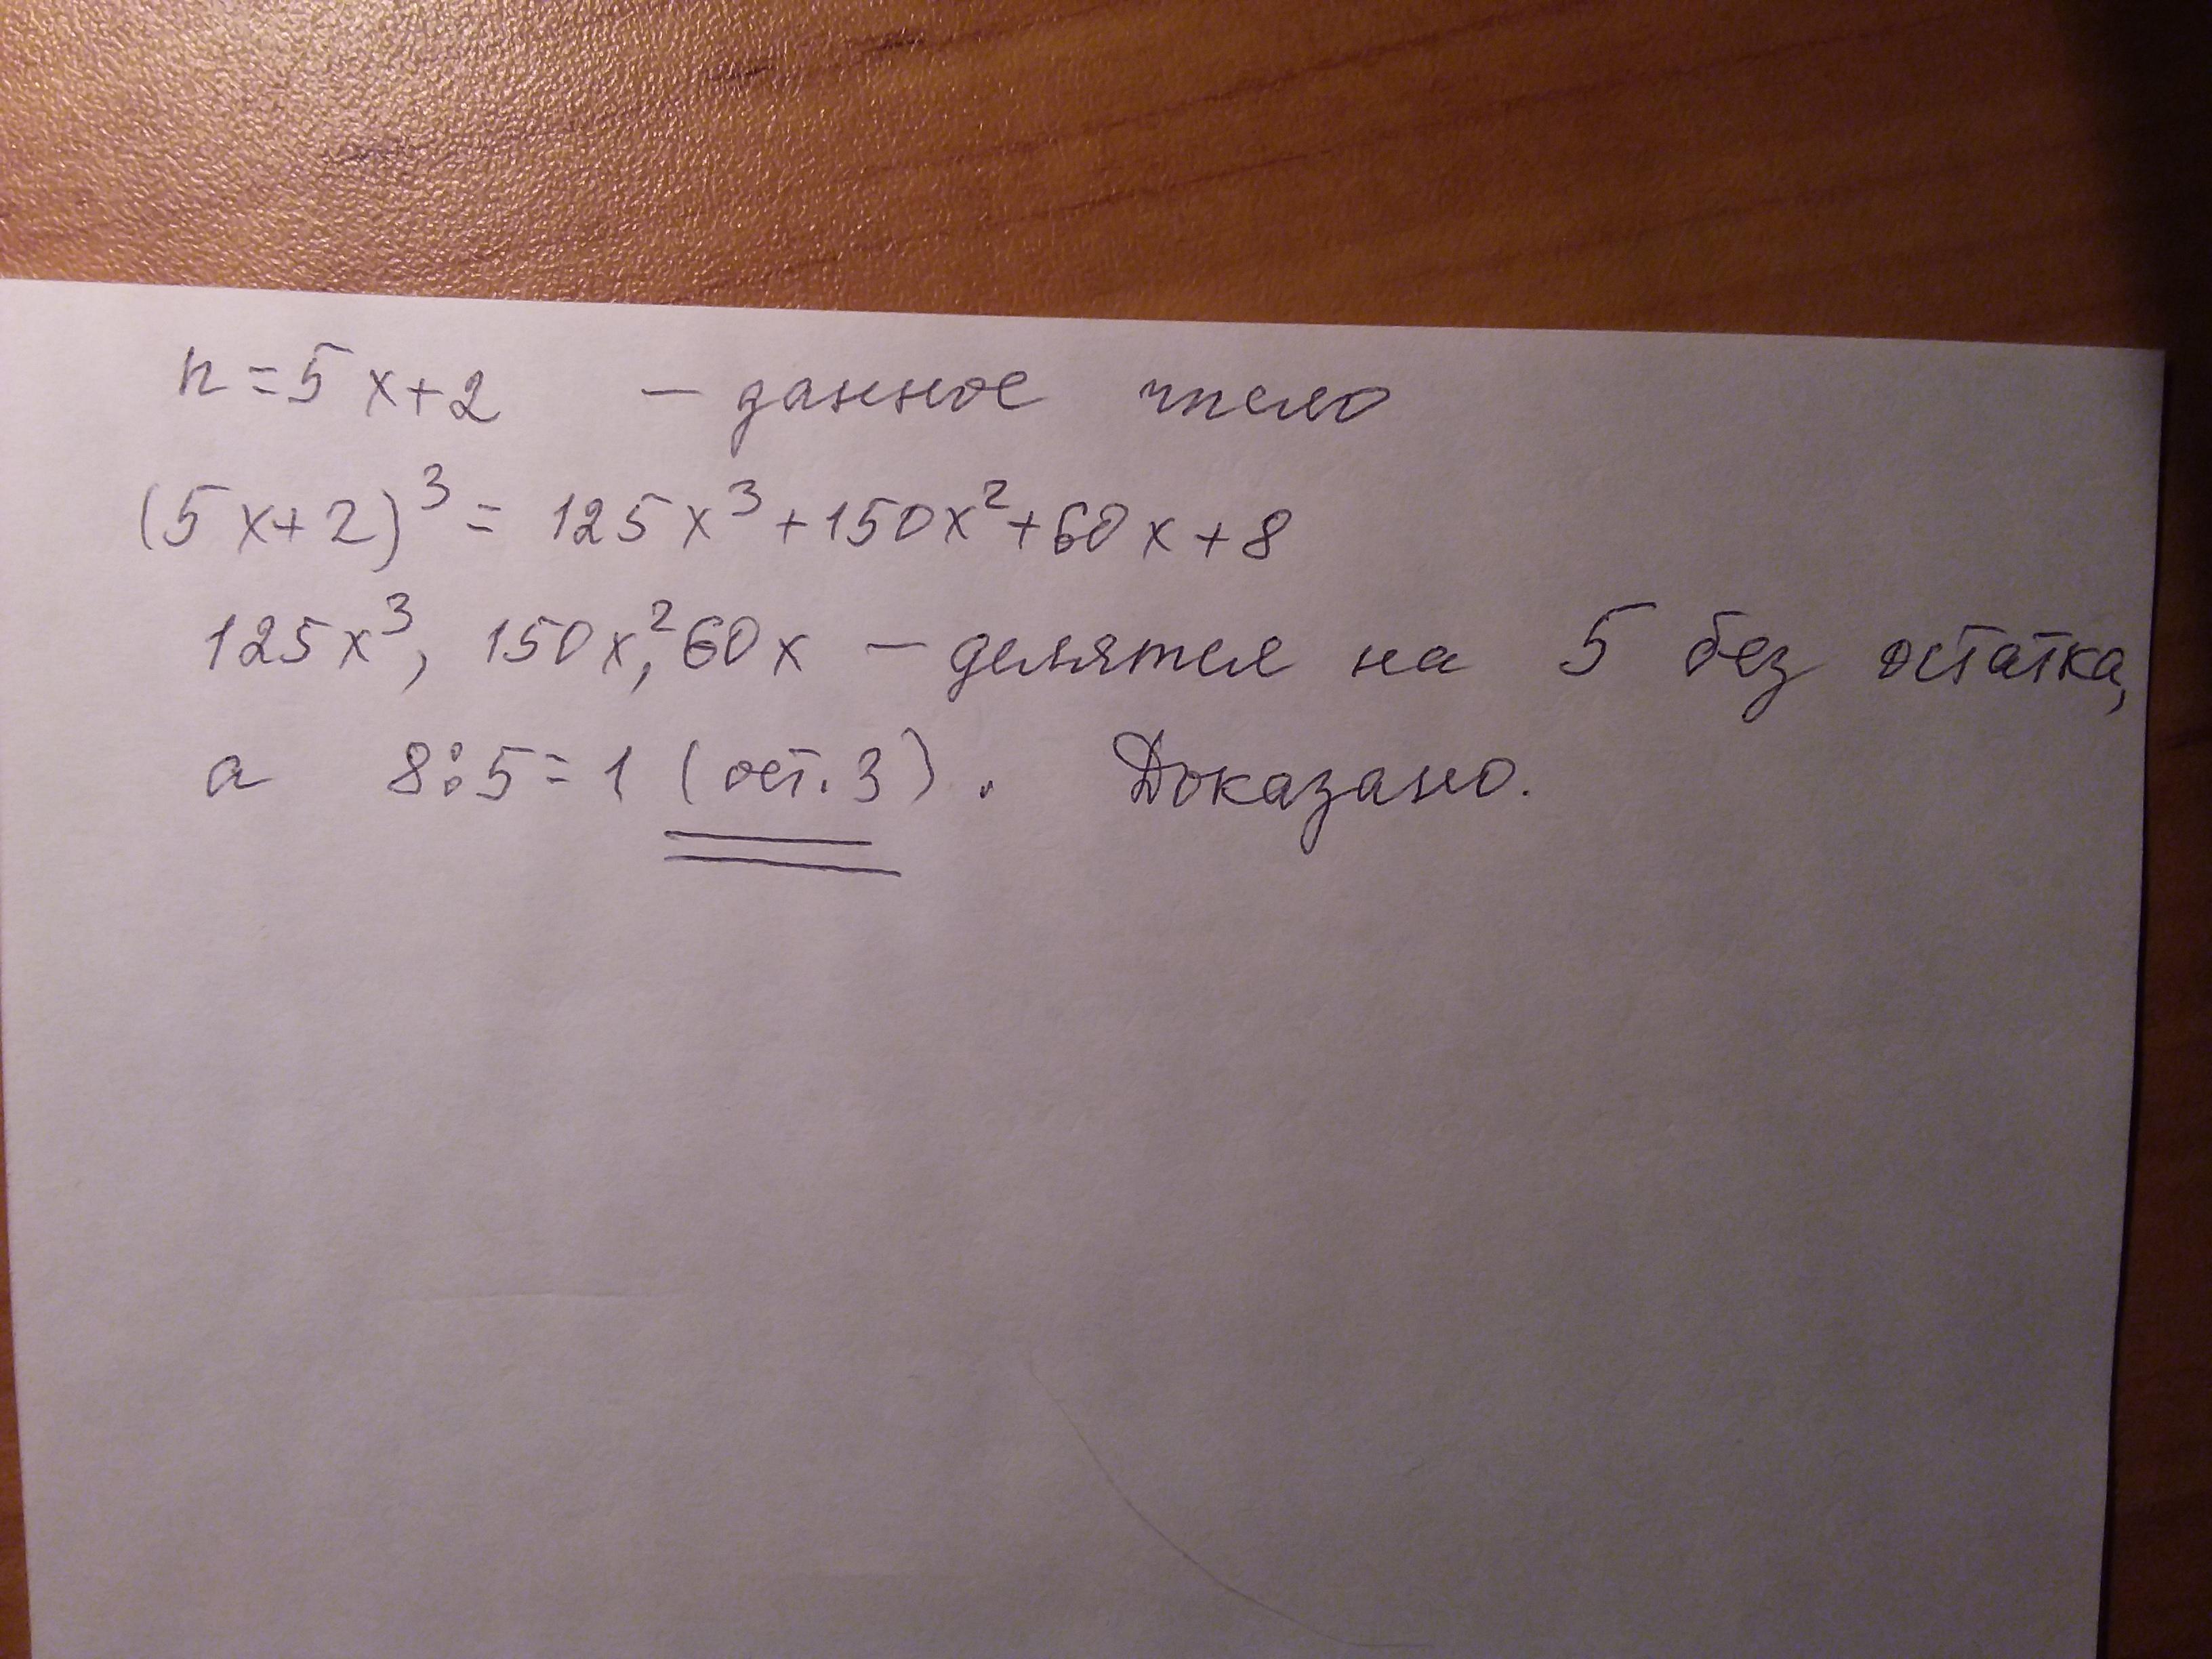 n=5x+2 – данное число
(5x+2)³= 125x³+150x²+60x+8
125x³, 150x²,60x – делятся на 5 без остатка,
а 8:5=1 (ост.3). Доказано.